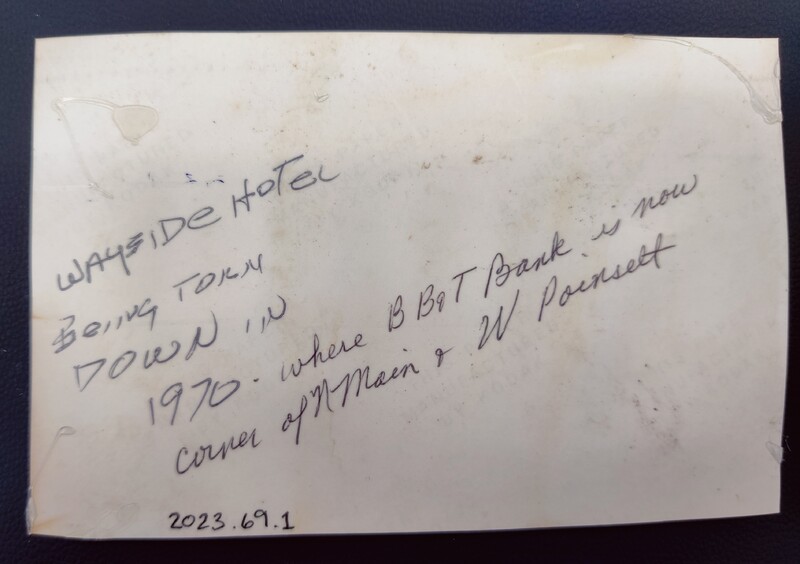 WAYSIDE HOTEL
BeiNg TORN
DOWN IN
1970. where B B&T Bank is now
corner of N Main & W Poinsett
2023.69.1